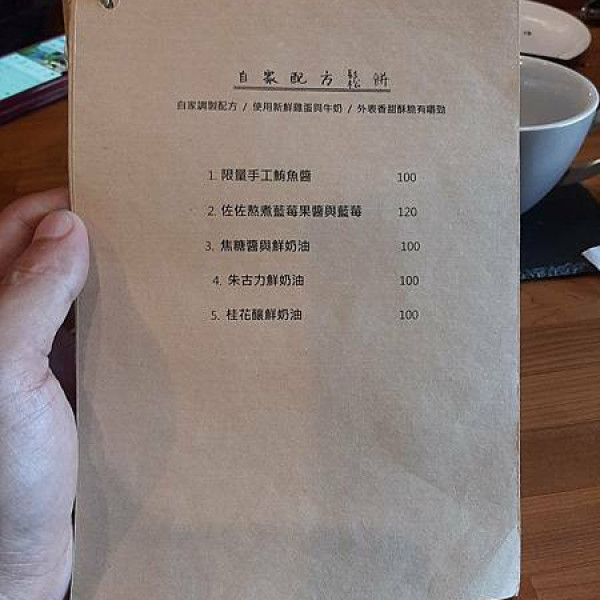 自家配方鬆餅
自家調製配方 / 使用新鮮雞蛋與牛奶 / 外表香甜酥脆有嚼勁
1. 限量手工鮪魚醬 100
2. 佐佐熬煮藍莓果醬與藍莓 120
3. 焦糖醬與鮮奶油 100
4. 朱古力鮮奶油 100
5. 桂花釀鮮奶油 100